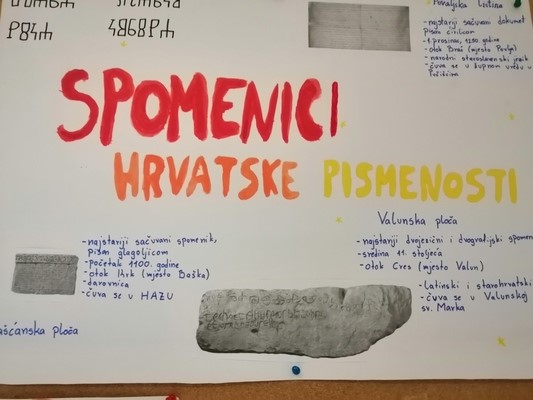 Povaljska listina
- najstariji sačuvani dokument
pisan ćirilicom
- 1. prosinac, 1250. godine
- otok Brač (mjesto Povlja)
- narodni staroslavenski jezik
- čuva se u župnom uredu u
Pučišćima
SPOMENICI
HRVATSKE PISMENOSTI
- najstariji sačuvani spomenik,
pisan glagoljicom
- početak 1100. godine
- otok Krk (mjesto Baška)
- darovnica
- čuva se u HAZU
ašćanska ploča
Valunska ploča
- najstariji dvojezični i dvografijski spomen
- sredina 11. stoljeća
- otok Cres (mjesto Valun)
- latinski i starohrvatski
- čuva se u Valunskoj
sv. Marka